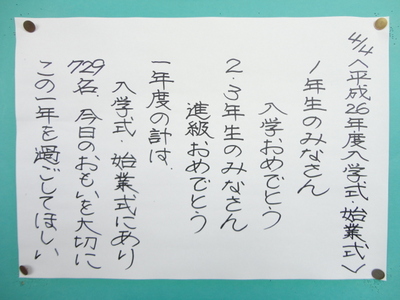 4/4 〈平成26年度入学式・始業式〉
1年生のみなさん
入学おめでとう
2・3年生のみなさん
進級おめでとう
一年度の計は、
入学式・始業式にあり
729名、今日のおもいを大切に
この一年を過ごしてほしい